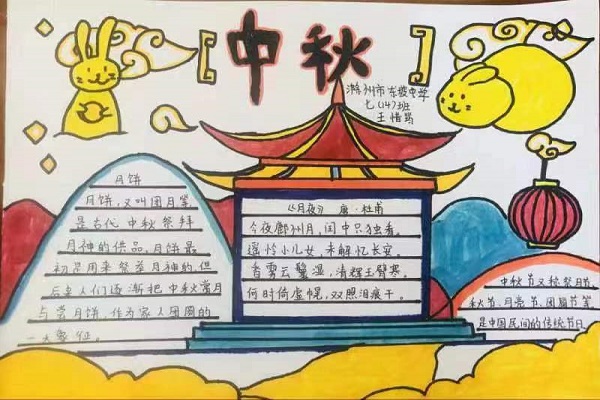 【中秋】
滁州市东坡中学
七(14)班
王惜
月饼
月饼,又叫团月等
是古代中秋祭拜
月神的供品,月饼最
初是用来祭奉月神的,但
后来人们逐渐把中秋赏月
与尝月饼,作为家人团圆的
一大象征。
《月夜》 唐·杜甫
今夜鄜州月,闺中只独看。
遥怜小儿女,未解忆长安。
香雾云鬟湿,清辉玉臂寒。
何时倚虚幌,双照泪痕干。
中秋节又称祭月节、
秋节、月亮节、团圆节等
是中国民间的传统节日